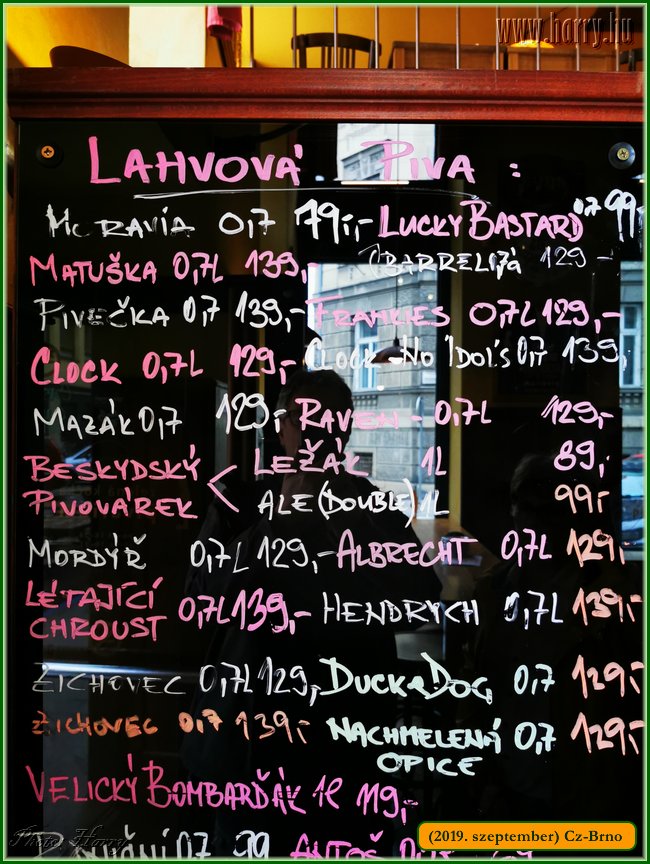 www.harry.hu
LAHVOVÁ PIVA :
MORAVIA 0,7 79,- LUCKY BASTARD 0,7 99
MATUŠKA 0,7L 139,- (BARRELIZÁ 129 -
PIVEČKA 0,7 139,- FRANKIES 0,7L 129,-
CLOCK 0,7L 129,- CLOCK - NO IDOL'S 0,7 139,
MAZÁK 0,7 129,- RAVEN - 0,7L 129,-
BESKYDSKÝ PIVOVÁREK < LEŽÁK 1L 89,-
ALE (DOUBLE) 1L 99,-
MORDÝŘ 0,7L 129,- ALBRECHT 0,7L 129,-
LÉTAJÍCÍ CHROUST 0,7L 139,- HENDRYCH 0,7L 139,-
ZICHOVEC 0,7L 129,- DUCK & DOG 0,7 129,-
ZICHOVEC 0,7 139,- NACHMELENÁ OPICE 0,7 129,-
VELICKÝ BOMBARĎÁK 1l 119,-
99 ANTOŠ
Photo: Harry
(2019. szeptember) Cz-Brno